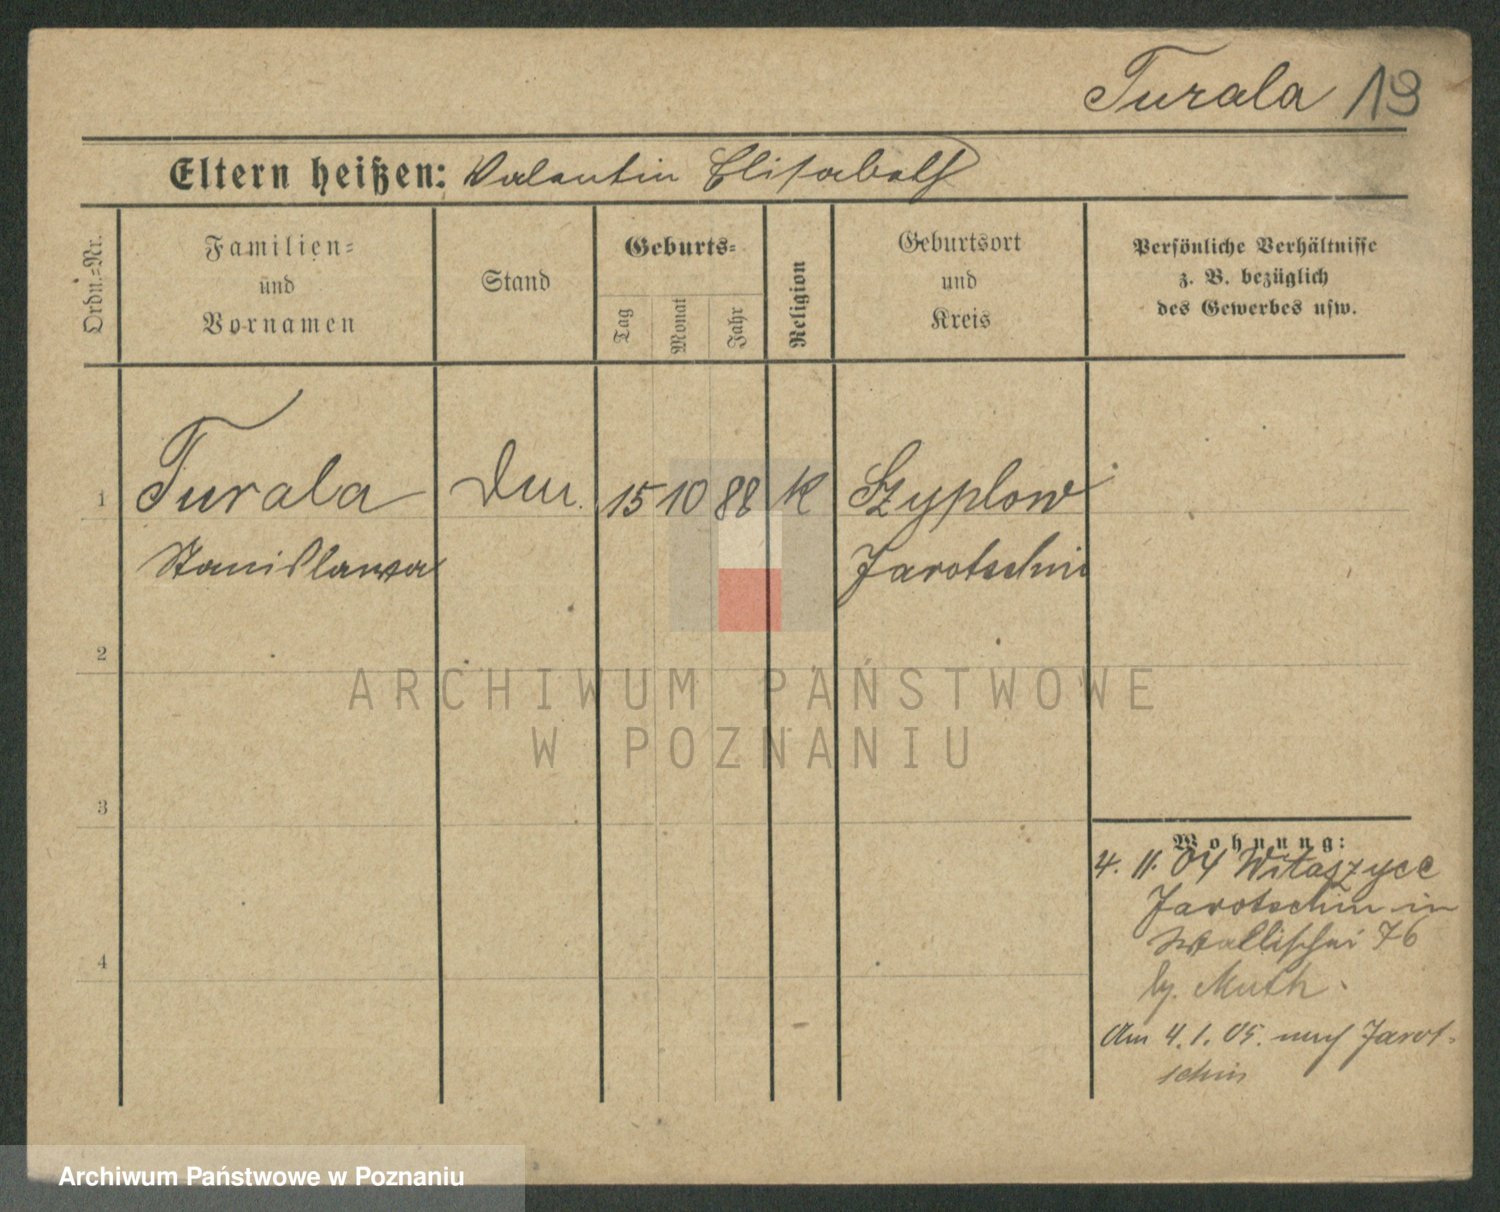 Turala 19
Eltern heißen: Valentin Elisabeth
Ordn.=Nr.
Familien=
und
Vornamen
Stand
Geburts=
Tag
Monat
Jahr
Religion
Geburtsort
und
Kreis
Persönliche Verhältnisse
z. B. bezüglich
des Gewerbes usw.
1 Turala 15 10 88 K Szyplow
Stanislawa Jarotschin
2
3
4
Wohnung:
4. 11. 04 Witaszyce
Jarotschin in
Wallischei 76
Muth.
Am 4. 1. 05. nach Jarot-
schin
ARCHIWUM PAŃSTWOWE
W POZNANIU
Archiwum Państwowe w Poznaniu